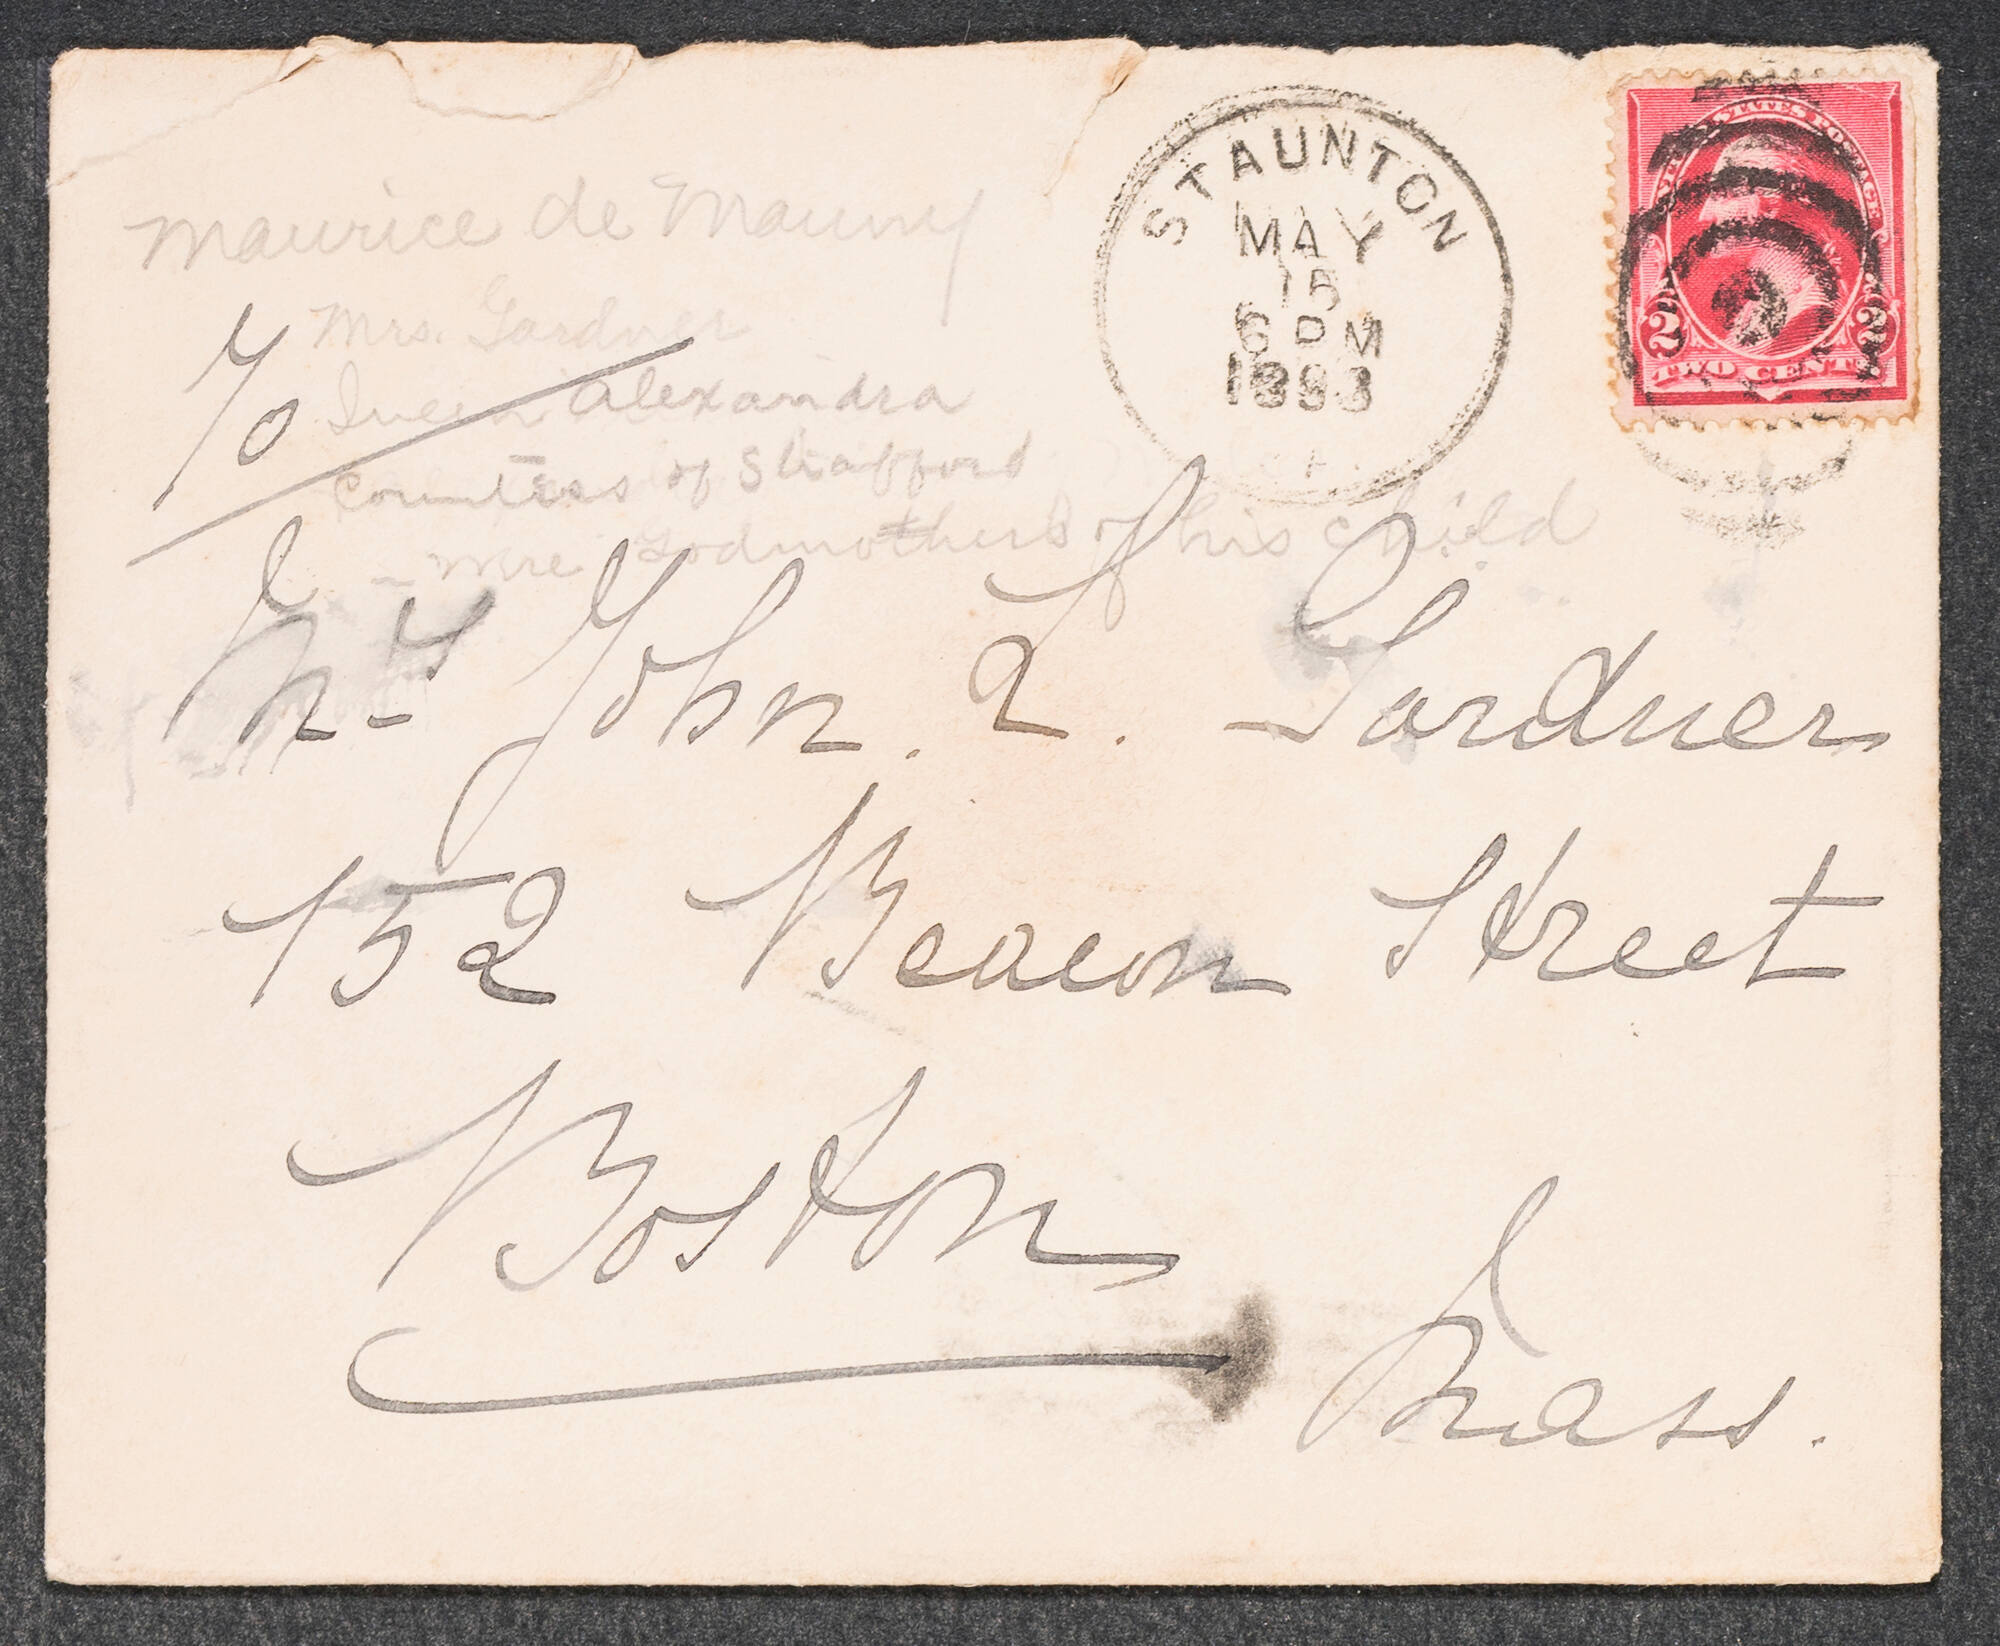 Maurice de Mauny
Mrs. Gardner
Queen Alexandra
Countess of Strafford
- were Godmothers of his child
STAUNTON
MAY
15
6 PM
1893
STATES POSTAGE
2 2
TWO CENTS
To
Mrs John. L. Gardner
152 Beacon Street
Boston
Mass.